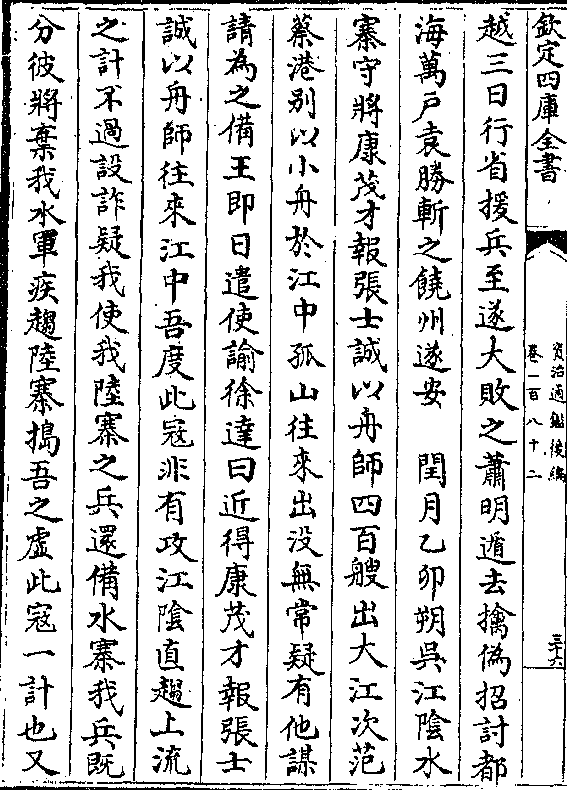 欽定四庫全書
資治通鑑後編
卷一百八十二
三十六
越三日行省援兵至遂大敗之蕭明遁去擒偽招討都
海萬戸袁勝斬之饒州遂安　閏月乙卯朔吳江陰水
寨守將康茂才報張士誠以舟師四百艘出大江次范
蔡港别以小舟於江中孤山往來出没無常疑有他謀
請為之備王即日遣使諭徐達曰近得康茂才報張士
誠以舟師往來江中吾度此冦非有攻江陰直趨上流
之計不過設詐疑我使我陸寨之兵還備水寨我兵既
分彼將棄我水軍疾趨陸寨搗吾之虛此冦一計也又